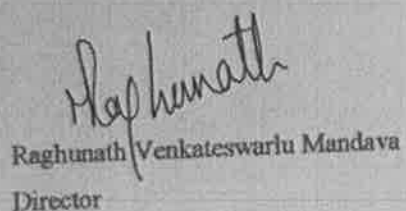 Raghunath
Raghunath Venkateswarlu Mandava
Director